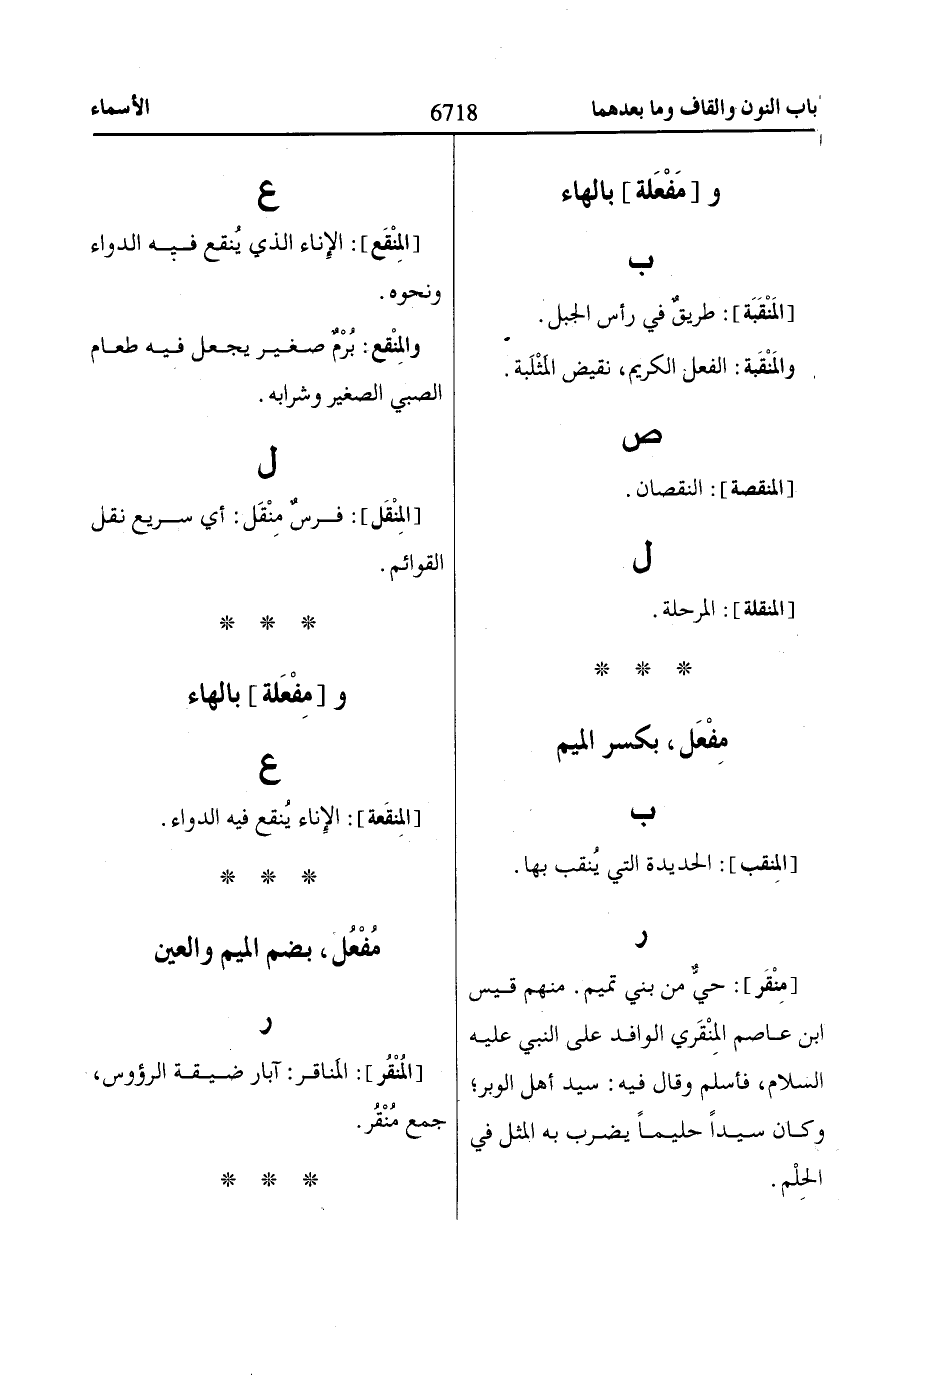 باب النون والقاف وما بعدهما 6718 الأسماء
و [مَفْعَلة] بالهاء
ب
[المَنْقَبَة]: طريقٌ في رأس الجبل.
والمَنْقَبة: الفعل الكريم، نقيض المَثْلَبة.
ص
[المنقصة]: النقصان.
ل
[المنقلة]: المرحلة.
* * *
مِفْعَل، بكسر الميم
ب
[المِنقب]: الحديدة التي يُنقب بها.
ر
[مِنْقَر]: حيٌّ من بني تميم. منهم قيس
ابن عاصم المِنْقَري الوافد على النبي عليه
السلام، فأسلم وقال فيه: سيد أهل الوبر؛
وكان سيداً حليماً يضرب به المثل في
الحِلْم.
ع
[المِنْقَع]: الإناء الذي يُنقع فيه الدواء
ونحوه.
والمِنْقع: بُرْمٌ صغير يجعل فيه طعام
الصبي الصغير وشرابه.
ل
[المِنْقَل]: فرسٌ مِنْقَل: أي سريع نقل
القوائم.
* * *
و [مِفْعَلة] بالهاء
ع
[المِنقَعة]: الإناء يُنقع فيه الدواء.
* * *
مُفْعُل، بضم الميم والعين
ر
[المُنْقُر]: المَناقر: آبار ضيقة الرؤوس،
جمع مُنْقُر.
* * *